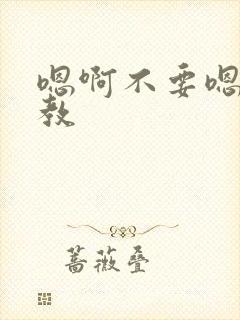 嗯啊不要嗯
教
蔷薇叠